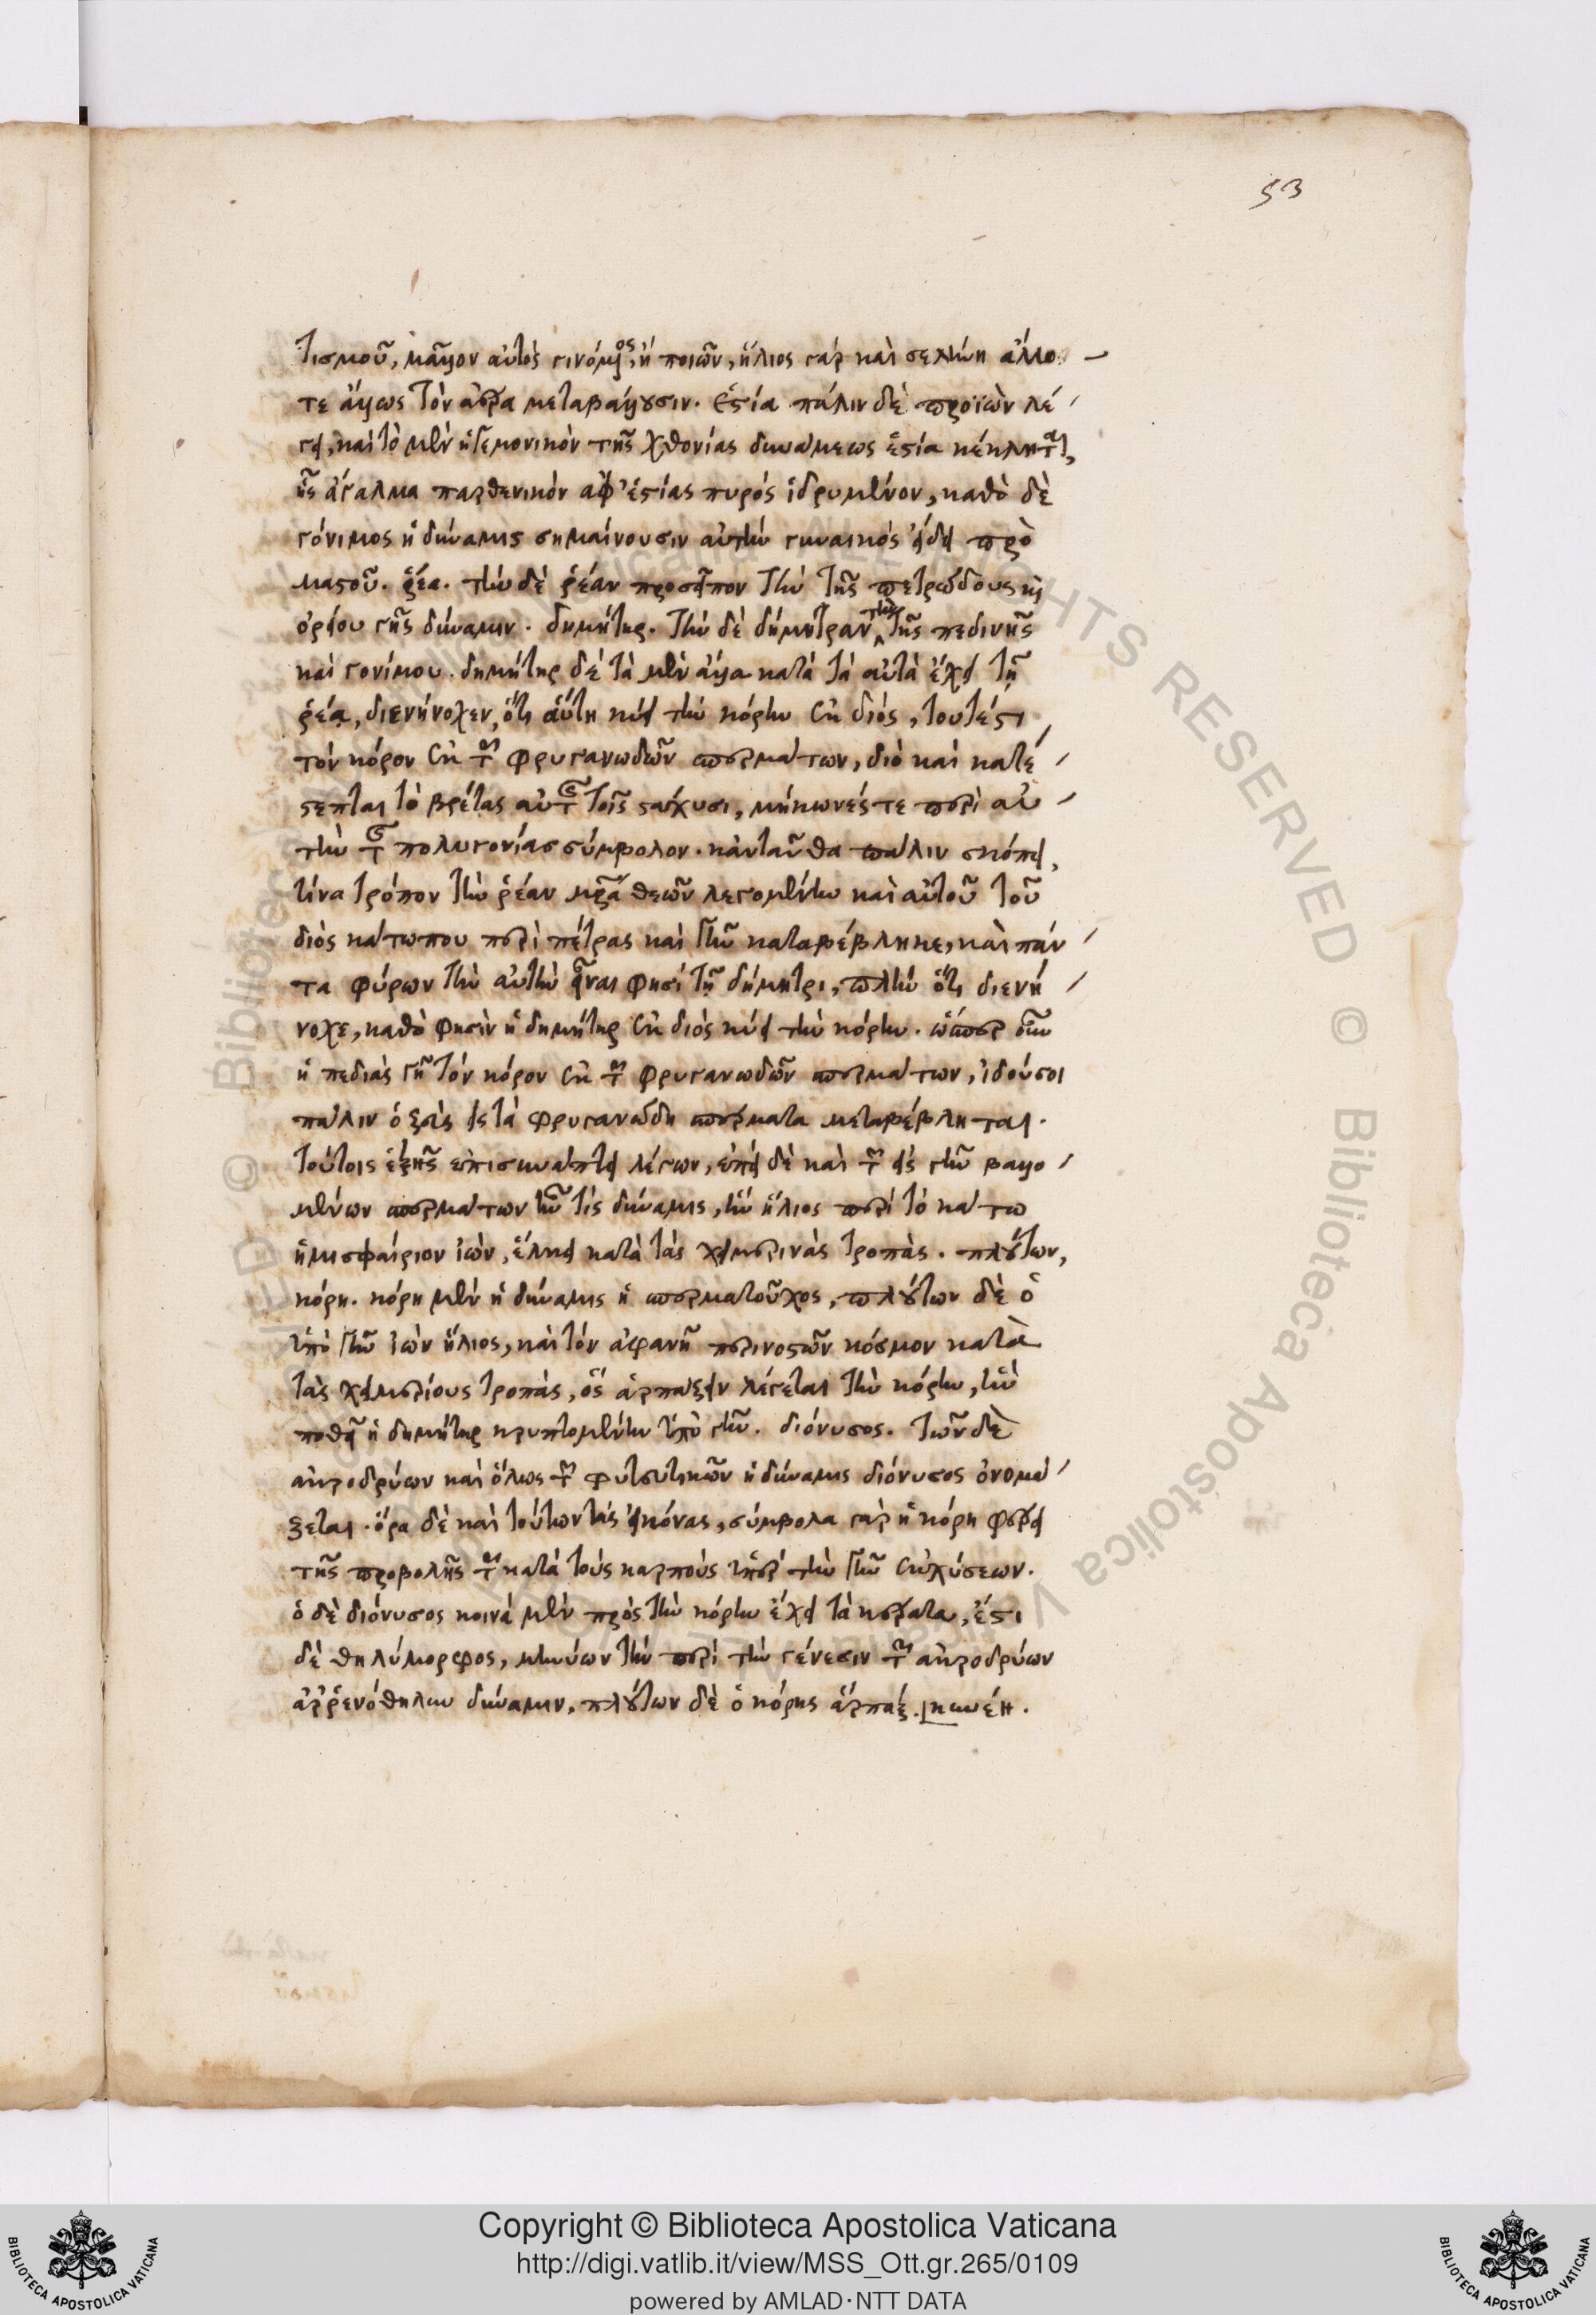 53
τισμοῦ, μᾶλλον αὐτὸς γινόμενος, ἢ ποιῶν, ἥλιος γὰρ καὶ σελήνη ἄλλο
τε ἄλλως τὸν ἀέρα μεταβάλλουσιν. Ἑστία πάλιν δὲ προϊὼν λέ
γει, καὶ τὸ μὲν ἡγεμονικὸν τῆς χθονίας δυνάμεως ἑστία κέκληται,
ἧς ἄγαλμα παρθενικὸν ἀφ' ἑστίας πυρὸς ἱδρυμένον, καθὸ δὲ
γόνιμος ἡ δύναμις σημαίνουσιν αὐτὴν γυναικὸς εἴδει προ
μαστοῦ. ῥέα. τὴν δὲ ῥέαν προσεῖπον τὴν τῆς πετρώδους καὶ
ὀρείου γῆς δύναμιν. δημήτηρ. τὴν δὲ δήμητραν τὴν τῆς πεδινῆς
καὶ γονίμου. δημήτηρ δὲ τὰ μὲν ἄλλα κατὰ τὰ αὐτὰ ἔχει τῇ
ῥέᾳ, διενήνοχεν, ὅτι αὕτη κύει τὴν κόρην ἐκ διός, τουτέστι
τὸν κόρον ἐκ τῶν φρυγανωδῶν σπερμάτων, διὸ καὶ κατέ
στεπται τὸ βρέτας αὐτῆς τοῖς στάχυσι, μήκωνές τε περὶ αὐ
τὴν τῆς πολυγονίας σύμβολον. κἀνταῦθα πάλιν σκόπει,
τίνα τρόπον τὴν ῥέαν μητέρα θεῶν λεγομένην καὶ αὐτοῦ τοῦ
διὸς κάτω που περὶ πέτρας καὶ γῆν καταβέβληκε, καὶ πάν
τα φύρων τὴν αὐτὴν εἶναί φησι τῇ δήμητρι, πλὴν ὅτι διενή
νοχε, καθὸ φησὶν ἡ δημήτηρ ἐκ διὸς κύει τὴν κόρην. ὥσπερ οὖν
ἡ πεδιὰς γῆ τὸν κόρον ἐκ τῶν φρυγανωδῶν σπερμάτων, ἰδού σοι
πάλιν ὁ ζεὺς εἰς τὰ φρυγανώδη σπέρματα μεταβέβληται.
τούτοις ἑξῆς ἐπισυνάπτει λέγων, ἐπεὶ δὲ καὶ τῶν εἰς γῆν βαλλο
μένων σπερμάτων ἦν τις δύναμις, ἣν ἥλιος περὶ τὸ κάτω
ἡμισφαίριον ἰών, ἕλκει κατὰ τὰς χειμερινὰς τροπάς. πλούτων,
κόρη. κόρη μὲν ἡ δύναμις ἡ σπερματοῦχος, πλούτων δὲ ὁ
ὑπὸ γῆν ἰὼν ἥλιος, καὶ τὸν ἀφανῆ περινοστῶν κόσμον κατὰ
τὰς χειμερίους τροπάς, ὃς ἁρπάζειν λέγεται τὴν κόρην, ἣν
ποθεῖ ἡ δημήτηρ κρυπτομένην ὑπὸ γῆν. διόνυσος. τῶν δὲ
ἀκροδρύων καὶ ὅλως τῶν φυτευτικῶν ἡ δύναμις διόνυσος ὀνομά
ζεται. ὅρα δὲ καὶ τούτων τὰς εἰκόνας, σύμβολα γὰρ ἡ κόρη φέρει
τῆς προβολῆς τῶν κατὰ τοὺς καρποὺς ὑπὲρ τὴν γῆν ἐκχύσεων.
ὁ δὲ διόνυσος κοινὰ μὲν πρὸς τὴν κόρην ἔχει τὰ κέρατα, ἔστι
δὲ θηλύμορφος, μηνύων τὴν περὶ τὴν γένεσιν τῶν ἀκροδρύων
ἀῤῥενόθηλυν δύναμιν, πλούτων δὲ ὁ κόρης ἅρπαξ. κυνέη.
Copyright © Biblioteca Apostolica Vaticana
http://digi.vatlib.it/view/MSS_Ott.gr.265/0109
powered by AMLAD·NTT DATA